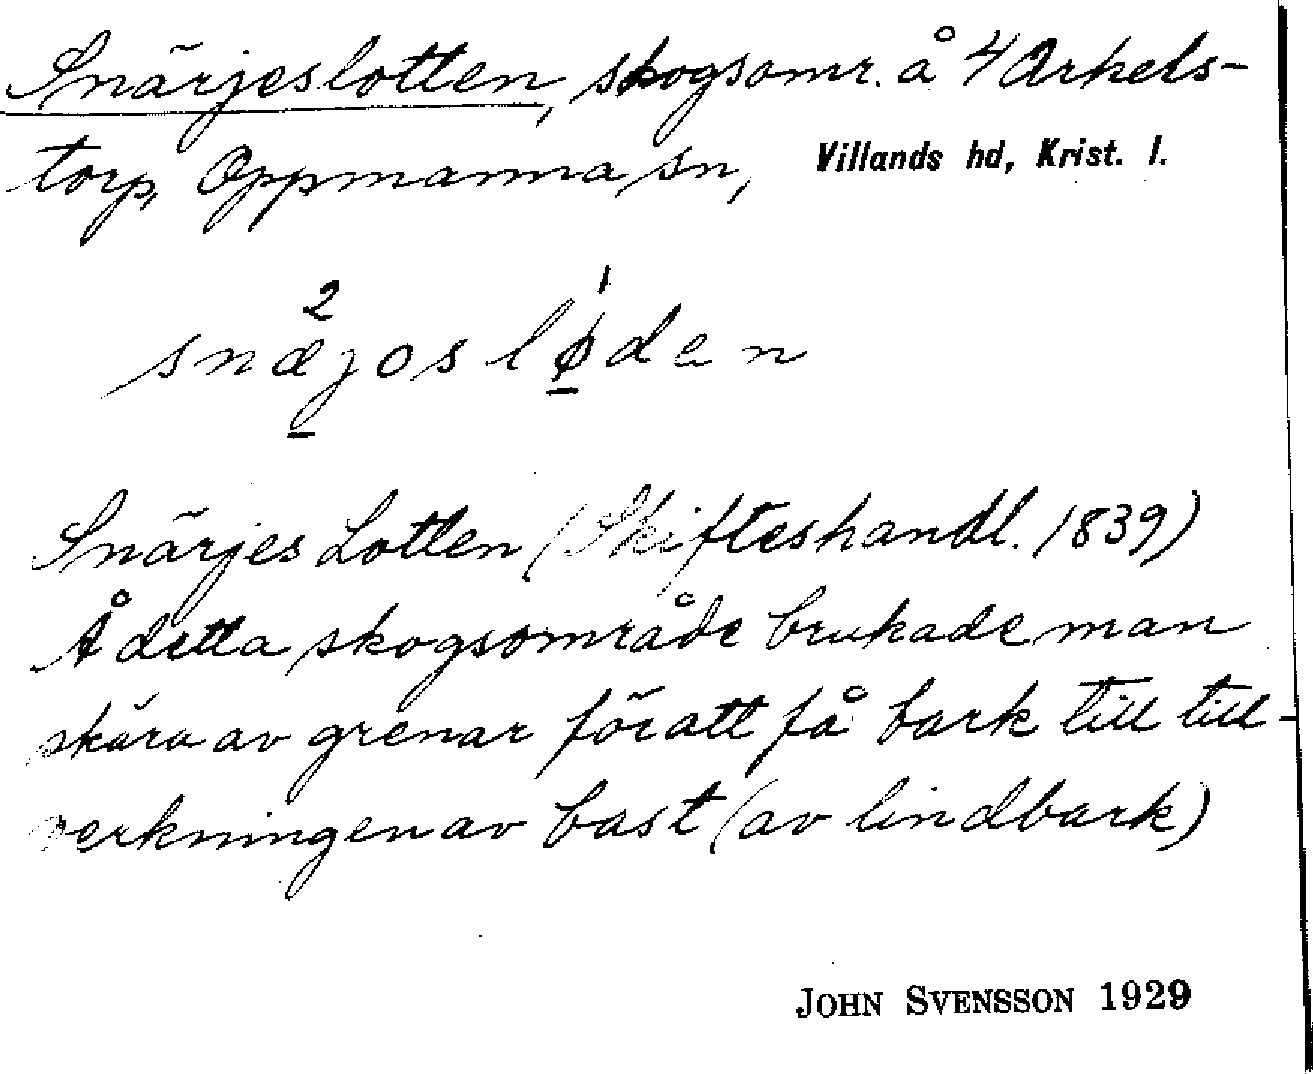 Snärjeslotten, skogsomr. å 4 Arkels-
torp, Oppmanna sn, Villands hd, Krist. l.
2 1
snæjos løden
Snärjes Lotten (Skifteshandl. 1839)
Å detta skogsområde brukade man
skära av grenar för att få bark till till-
verkningen av bast (av lindbark)
JOHN SVENSSON 1929